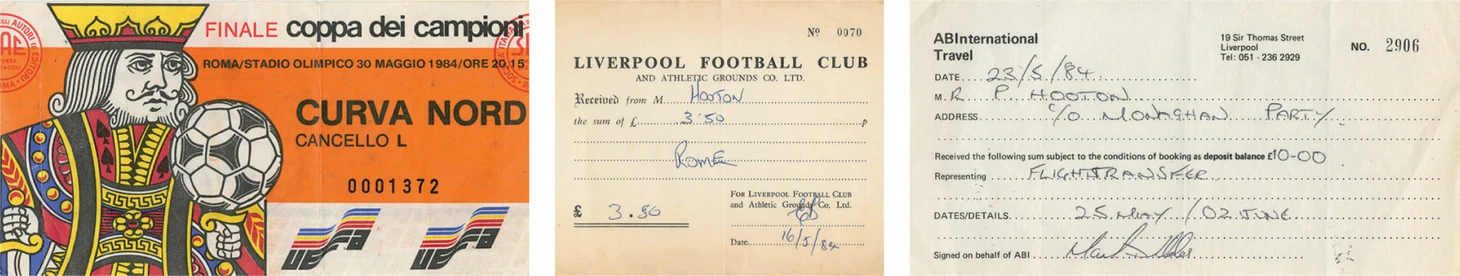 FINALE coppa dei campioni
ROMA/STADIO OLIMPICO 30 MAGGIO 1984/ORE 20.15
CURVA NORD
CANCELLO L
0001372
UEFA UEFA
Nº 0070
LIVERPOOL FOOTBALL CLUB
AND ATHLETIC GROUNDS CO. LTD.
Received from M HOOTON
the sum of £ 3.50 p
ROME
FOR LIVERPOOL FOOTBALL CLUB
and Athletic Grounds Co. Ltd.
£ 3.50
Date 16/5/84
ABInternational
Travel
19 Sir Thomas Street
Liverpool
Tel: 051 - 236 2929
NO. 2906
DATE 23/5/84
M R P. HOOTON
ADDRESS C/O MONAGHAN PARTY.
Received the following sum subject to the conditions of booking as deposit balance £10-00
Representing FLIGHT TRANSFER
DATES/DETAILS 25 MAY / 02 JUNE
Signed on behalf of ABI